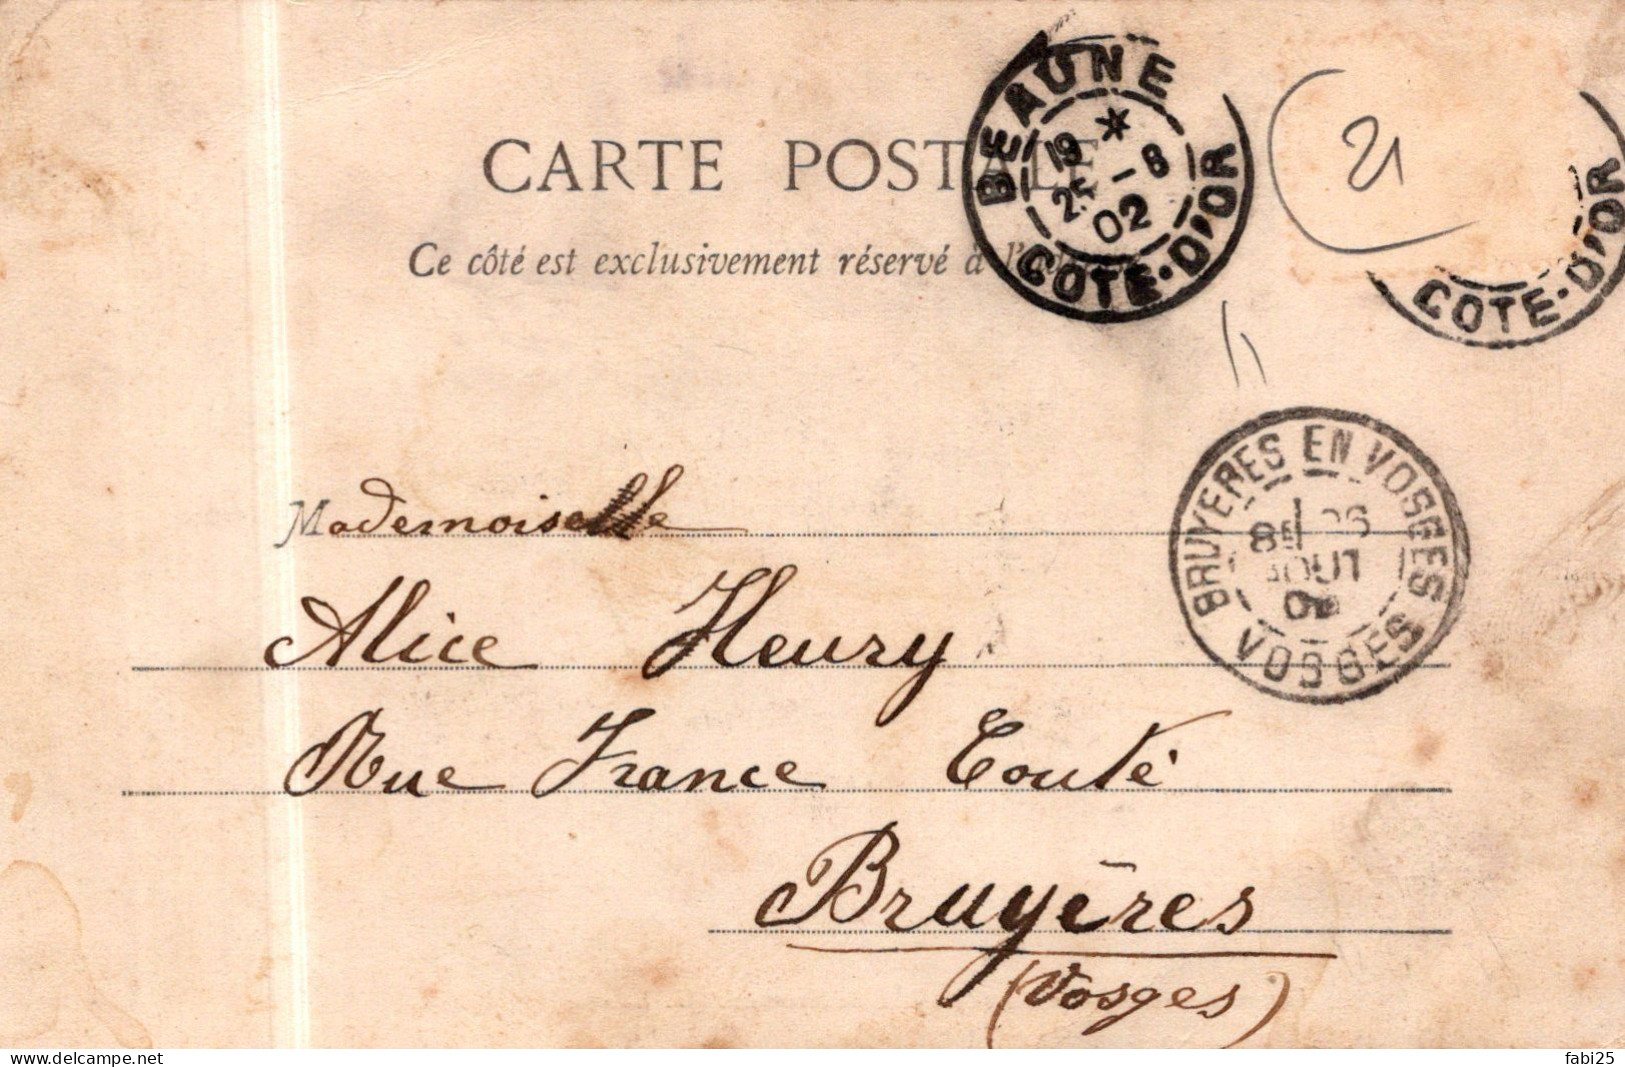 CARTE POSTALE
Ce côté est exclusivement réservé à l'adresse
BEAUNE
19 *
25 -8
02
COTE-D'OR
21
COTE-D'OR
BRUYERES EN VOSGES
8E 26
AOUT
02
VOSGES
Mademoiselle
Alice Henry
Rue France Conté
Bruyères
(Vosges)
www.delcampe.net
fabi25